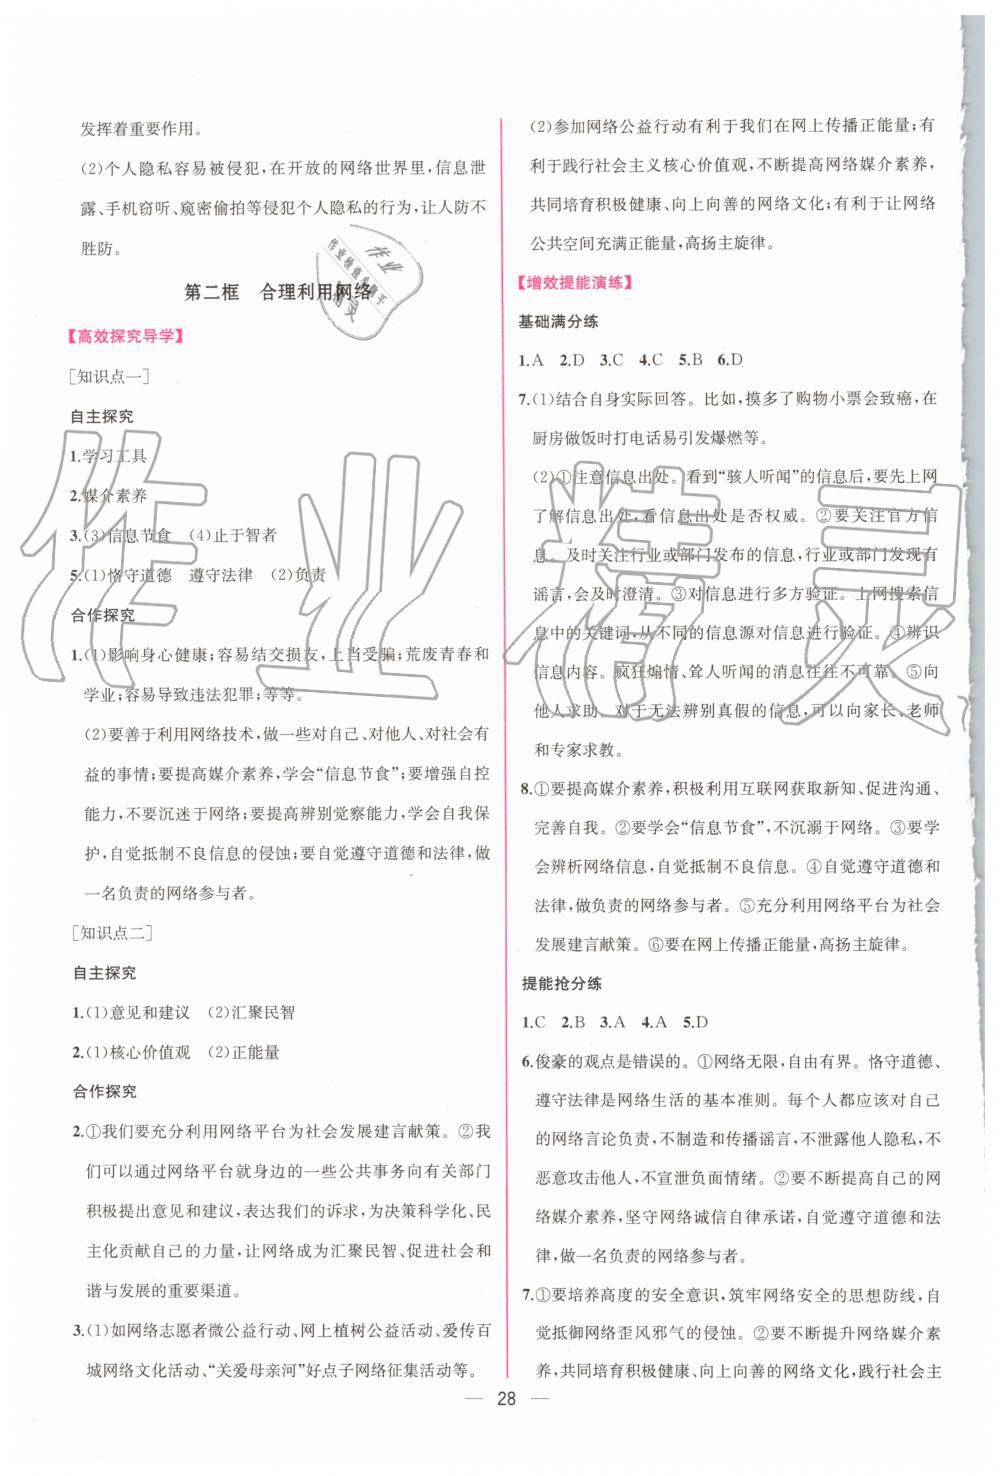 发挥着重要作用。
(2)个人隐私容易被侵犯,在开放的网络世界里,信息泄
露、手机窃听、窥密偷拍等侵犯个人隐私的行为,让人防不
胜防。
第二框　合理利用网络
【高效探究导学】
[知识点一]
自主探究
1.学习工具
2.媒介素养
3.(3)信息节食　(4)止于智者
5.(1)恪守道德　遵守法律　(2)负责
合作探究
1.(1)影响身心健康;容易结交损友,上当受骗;荒废青春和
学业;容易导致违法犯罪;等等。
(2)要善于利用网络技术,做一些对自己、对他人、对社会有
益的事情;要提高媒介素养,学会“信息节食”;要增强自控
能力,不要沉迷于网络;要提高辨别觉察能力,学会自我保
护,自觉抵制不良信息的侵蚀;要自觉遵守道德和法律,做
一名负责的网络参与者。
[知识点二]
自主探究
1.(1)意见和建议　(2)汇聚民智
2.(1)核心价值观　(2)正能量
合作探究
2.①我们要充分利用网络平台为社会发展建言献策。②我
们可以通过网络平台就身边的一些公共事务向有关部门
积极提出意见和建议,表达我们的诉求,为决策科学化、民
主化贡献自己的力量,让网络成为汇聚民智、促进社会和
谐与发展的重要渠道。
3.(1)如网络志愿者微公益行动、网上植树公益活动、爱传百
城网络文化活动、“关爱母亲河”好点子网络征集活动等。
(2)参加网络公益行动有利于我们在网上传播正能量;有
利于践行社会主义核心价值观,不断提高网络媒介素养,
共同培育积极健康、向上向善的网络文化;有利于让网络
公共空间充满正能量,高扬主旋律。
【增效提能演练】
基础满分练
1.A　2.D　3.C　4.C　5.B　6.D
7.(1)结合自身实际回答。比如,摸多了购物小票会致癌,在
厨房做饭时打电话易引发爆燃等。
(2)①注意信息出处。看到“骇人听闻”的信息后,要先上网
了解信息出处,看信息出处是否权威。②要关注官方信
息。及时关注行业或部门发布的信息,行业或部门发现有
谣言,会及时澄清。③对信息进行多方验证。上网搜索信
息中的关键词,从不同的信息源对信息进行验证。④辨识
信息内容。疯狂煽情、耸人听闻的消息往往不可靠。⑤向
他人求助。对于无法辨别真假的信息,可以向家长、老师
和专家求教。
8.①要提高媒介素养,积极利用互联网获取新知、促进沟通、
完善自我。②要学会“信息节食”,不沉溺于网络。③要学
会辨析网络信息,自觉抵制不良信息。④自觉遵守道德和
法律,做负责的网络参与者。⑤充分利用网络平台为社会
发展建言献策。⑥要在网上传播正能量,高扬主旋律。
提能抢分练
1.C　2.B　3.A　4.A　5.D
6.俊豪的观点是错误的。①网络无限,自由有界。恪守道德、
遵守法律是网络生活的基本准则。每个人都应该对自己
的网络言论负责,不制造和传播谣言,不泄露他人隐私,不
恶意攻击他人,不宣泄负面情绪。②要不断提高自己的网
络媒介素养,坚守网络诚信自律承诺,自觉遵守道德和法
律,做一名负责的网络参与者。
7.①要培养高度的安全意识,筑牢网络安全的思想防线,自
觉抵御网络歪风邪气的侵蚀。②要不断提升网络媒介素
养,共同培育积极健康、向上向善的网络文化,践行社会主
— 28 —
作业精灵
作业
作业检查小助手
精灵